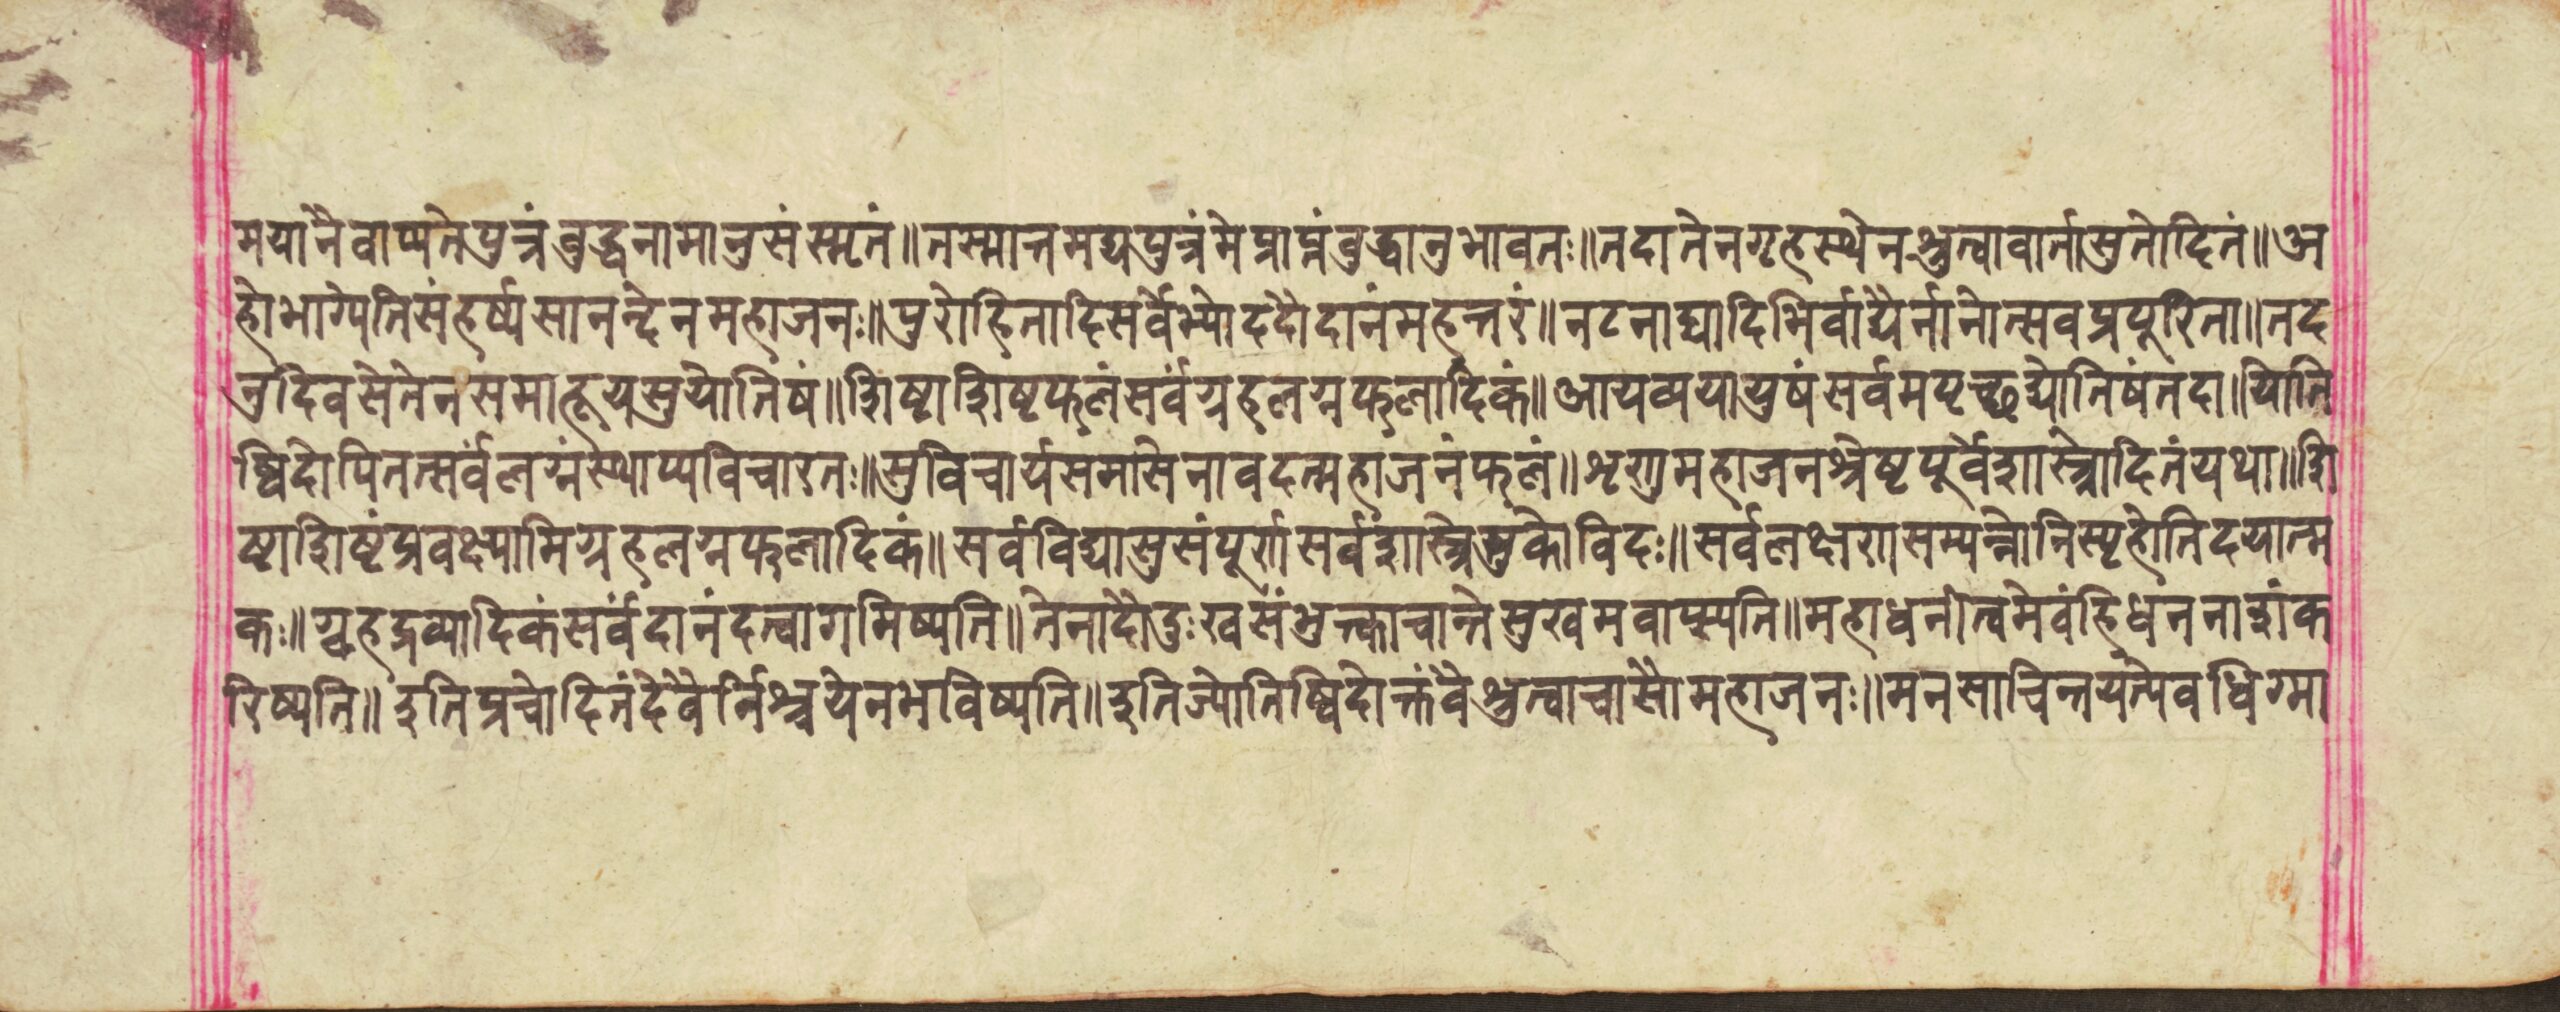 मयानैवाप्यतेपुत्रंबुद्धनामानुसंस्मृतं॥तस्मात्तमद्यपुत्रंमेप्राप्तंबुद्धानुभावतः॥तदातेनगृहस्थेनश्रुत्वावार्तासुतोदितं॥अ
होभाग्येतिसंहर्ष्यसानन्देनमहाजनः॥पुरोहितादिसर्वेभ्योददौदानंमहत्तरं॥नटनाद्यादिभिर्वाद्यैर्नानोत्सवप्रपूरिता॥तद
नुदिवसेतेनसमाहूयसुयोतिषं॥शिष्टाशिष्टफलंसर्वंग्रहलग्नफलादिकं॥आयव्ययायुषंसर्वमपृच्छद्योतिषंतदा॥योति
ष्विदोपितत्सर्वंलग्नंस्थाप्यविचारतः॥सुविचार्यसमासेनावदत्महाजनंफलं॥शृणुमहाजनश्रेष्टपूर्वेशास्त्रोदितंयथा॥शि
ष्टाशिष्टंप्रवक्ष्यामिग्रहलग्नफलादिकं॥सर्वविद्यासुसंपूर्णसर्वशास्त्रेसुकोविदः॥सर्वलक्षणसम्पन्नोनिस्पृहोतिदयात्म
कः॥गृहद्रव्यादिकंसर्वंदानंदत्वागमिष्यति॥तेनादौदुःखसंभुक्त्काचान्तेसुखमवाप्स्यति॥महाधनीत्वमेवंहिधननाशंक
रिष्यति॥इतिप्रचोदितंदेवैर्निश्चयेनभविष्यति॥इतिज्योतिष्विदोक्तंवैश्रुत्वाचासौमहाजनः॥मनसाचिन्तयत्येवधिग्मा